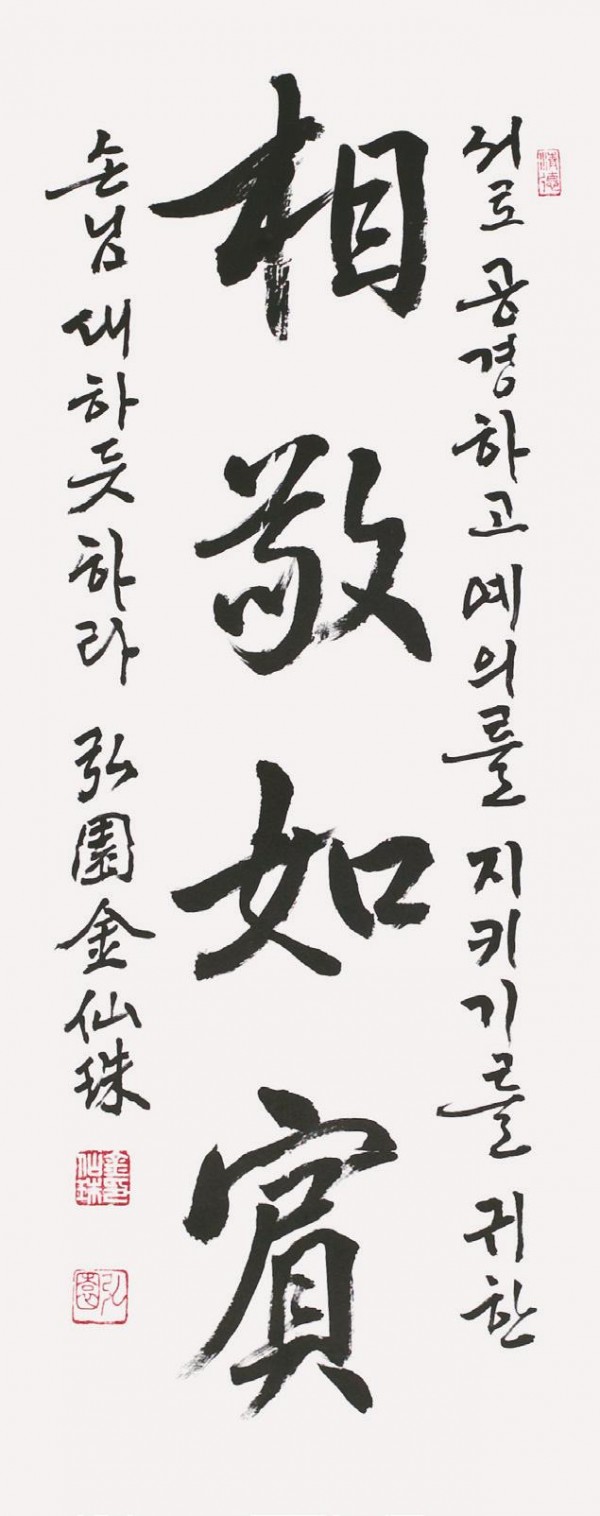 서로 공경하고 예의를 지키기를 귀한
相敬如賓
손님 대하듯하라 弘園金仙珠
金仙珠
弘園